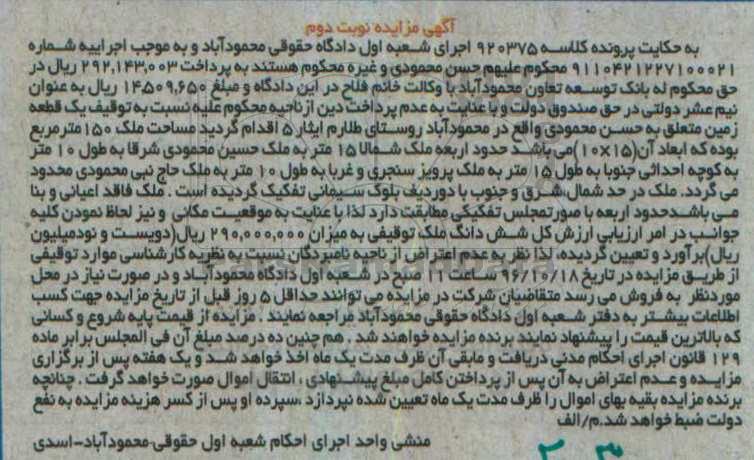 آگهی مزایده نوبت دوم
به حکایت پرونده کلاسه ۹۲۰۳۷۵ اجرای شعبه اول دادگاه حقوقی محمودآباد و به موجب اجراییه شماره
۹۱۱۰۴۲۱۲۲۷۱۰۰۰۲۱ محکوم علیهم حسن محمودی و غیره محکوم هستند به پرداخت ۲۹۲,۱۴۳,۰۰۳ ریال در
حق محکوم له بانک توسعه تعاون محمودآباد با وکالت خانم فلاح در این دادگاه و مبلغ ۱۴,۵۰۹,۶۵۰ ریال به عنوان
نیم عشر دولتی در حق صندوق دولت و با عنایت به عدم پرداخت دین از ناحیه محکوم علیه نسبت به توقیف یک قطعه
زمین متعلق به حسن محمودی واقع در محمودآباد روستای طلارم ایثار ۵ اقدام گردید مساحت ملک ۱۵۰ متر مربع
بوده که ابعاد آن (۱۵×۱۰) می باشد حدود اربعه ملک شمالا ۱۵ متر به ملک حسین محمودی شرقا به طول ۱۰ متر
به کوچه احداثی جنوبا به طول ۱۵ متر به ملک پرویز سنجری و غربا به طول ۱۰ متر به ملک حاج نبی محمودی محدود
می گردد. ملک در حد شمال، شرق و جنوب با دوردیف بلوک سیمانی تفکیک گردیده است . ملک فاقد اعیانی و بنا
می باشدحدود اربعه با صورتمجلس تفکیکی مطابقت دارد لذا با عنایت به موقعیت مکانی و نیز لحاظ نمودن کلیه
جوانب در امر ارزیابی ارزش کل شش دانگ ملک توقیفی به میزان ۲۹۰,۰۰۰,۰۰۰ ریال(دویست و نودمیلیون
ریال)برآورد و تعیین گردیده، لذا نظر به عدم اعتراض از ناحیه نامبردگان نسبت به نظریه کارشناسی موارد توقیفی
از طریق مزایده در تاریخ ۹۶/۱۰/۱۸ ساعت ۱۱ صبح در شعبه اول دادگاه محمودآباد و در صورت نیاز در محل
موردنظر به فروش می رسد متقاضیان شرکت در مزایده می توانند حداقل ۵ روز قبل از تاریخ مزایده جهت کسب
اطلاعات بیشتر به دفتر شعبه اول دادگاه حقوقی محمودآباد مراجعه نمایند . مزایده از قیمت پایه شروع و کسانی
که بالاترین قیمت را پیشنهاد نمایند برنده مزایده خواهند شد . هم چنین ده درصد مبلغ آن فی المجلس برابر ماده
۱۲۹ قانون اجرای احکام مدنی دریافت و مابقی آن ظرف مدت یک ماه اخذ خواهد شد و یک هفته پس از برگزاری
مزایده و عدم اعتراض به آن پس از پرداختن کامل مبلغ پیشنهادی ، انتقال اموال صورت خواهد گرفت . چنانچه
برنده مزایده بقیه بهای اموال را ظرف مدت یک ماه تعیین شده نپردازد ،سپرده او پس از کسر هزینه مزایده به نفع
دولت ضبط خواهد شد.م/الف
منشی واحد اجرای احکام شعبه اول حقوقی-محمودآباد-اسدی